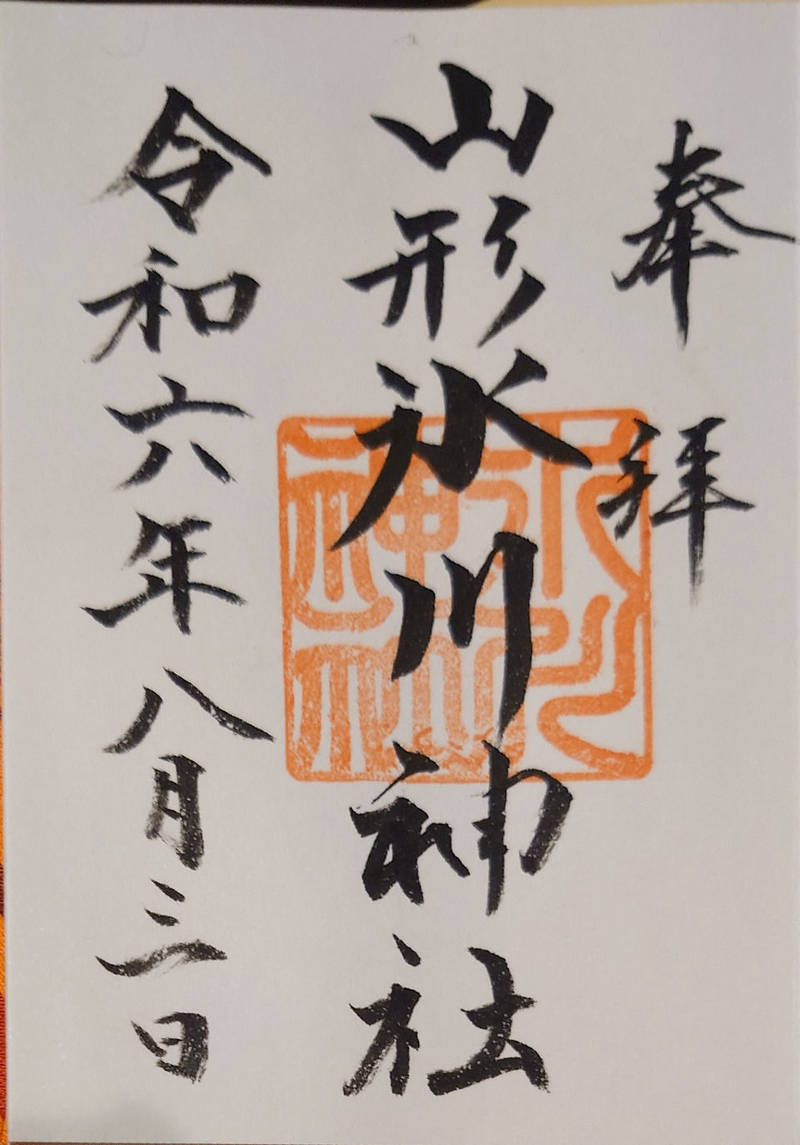 奉拝
山形氷川神社
令和六年八月三日
氷川
神社